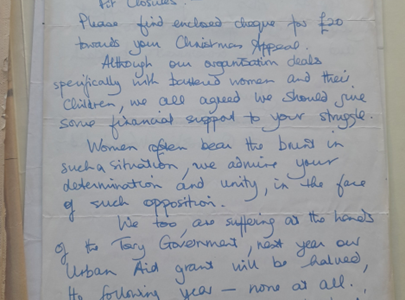 Pit Closures.
Please find enclosed cheque for £20
towards your Christmas Appeal.
Although our organisation deals
specifically with battered women and their
Children, we all agreed we should give
some financial support to your struggle.
Women often bear the brunt in
such a situation, we admire your
determination and unity, in the face
of such opposition.
We too, are suffering at the hands
of the Tory Government, next year our
Urban Aid grant will be halved,
the following year – none at all.